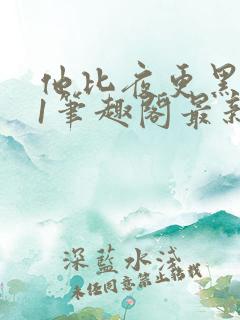 他比夜更黑
1笔趣阁最新
深藍水浅
未经同意禁止转载